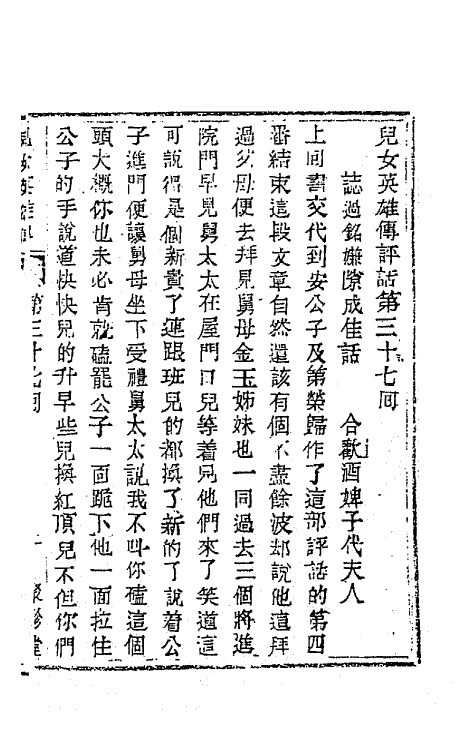 兒女英雄傳評話第三十七囘
誌過銘嫌隙成佳話　合歡酒婢子代夫人
上囘書交代到安公子及第榮歸作了這部評話的第四
番結束這段文章自然還該有個不盡餘波却說他這拜
過父母便去拜見舅母金玉姊妹也一同過去三個將進
院門早見舅太太在屋門口兒等着見他們來了笑道這
可說得是個新貴了連跟班兒的都換了新的了說着公
子進門便讓舅母坐下受禮舅太太說我不叫你磕這個
頭大概你也未必肯就磕罷公子一面跪下他一面拉住
公子的手說道快快兒的升早些兒換紅頂兒不但你們
兒女英雄　第三十七囘　一　聚珍堂